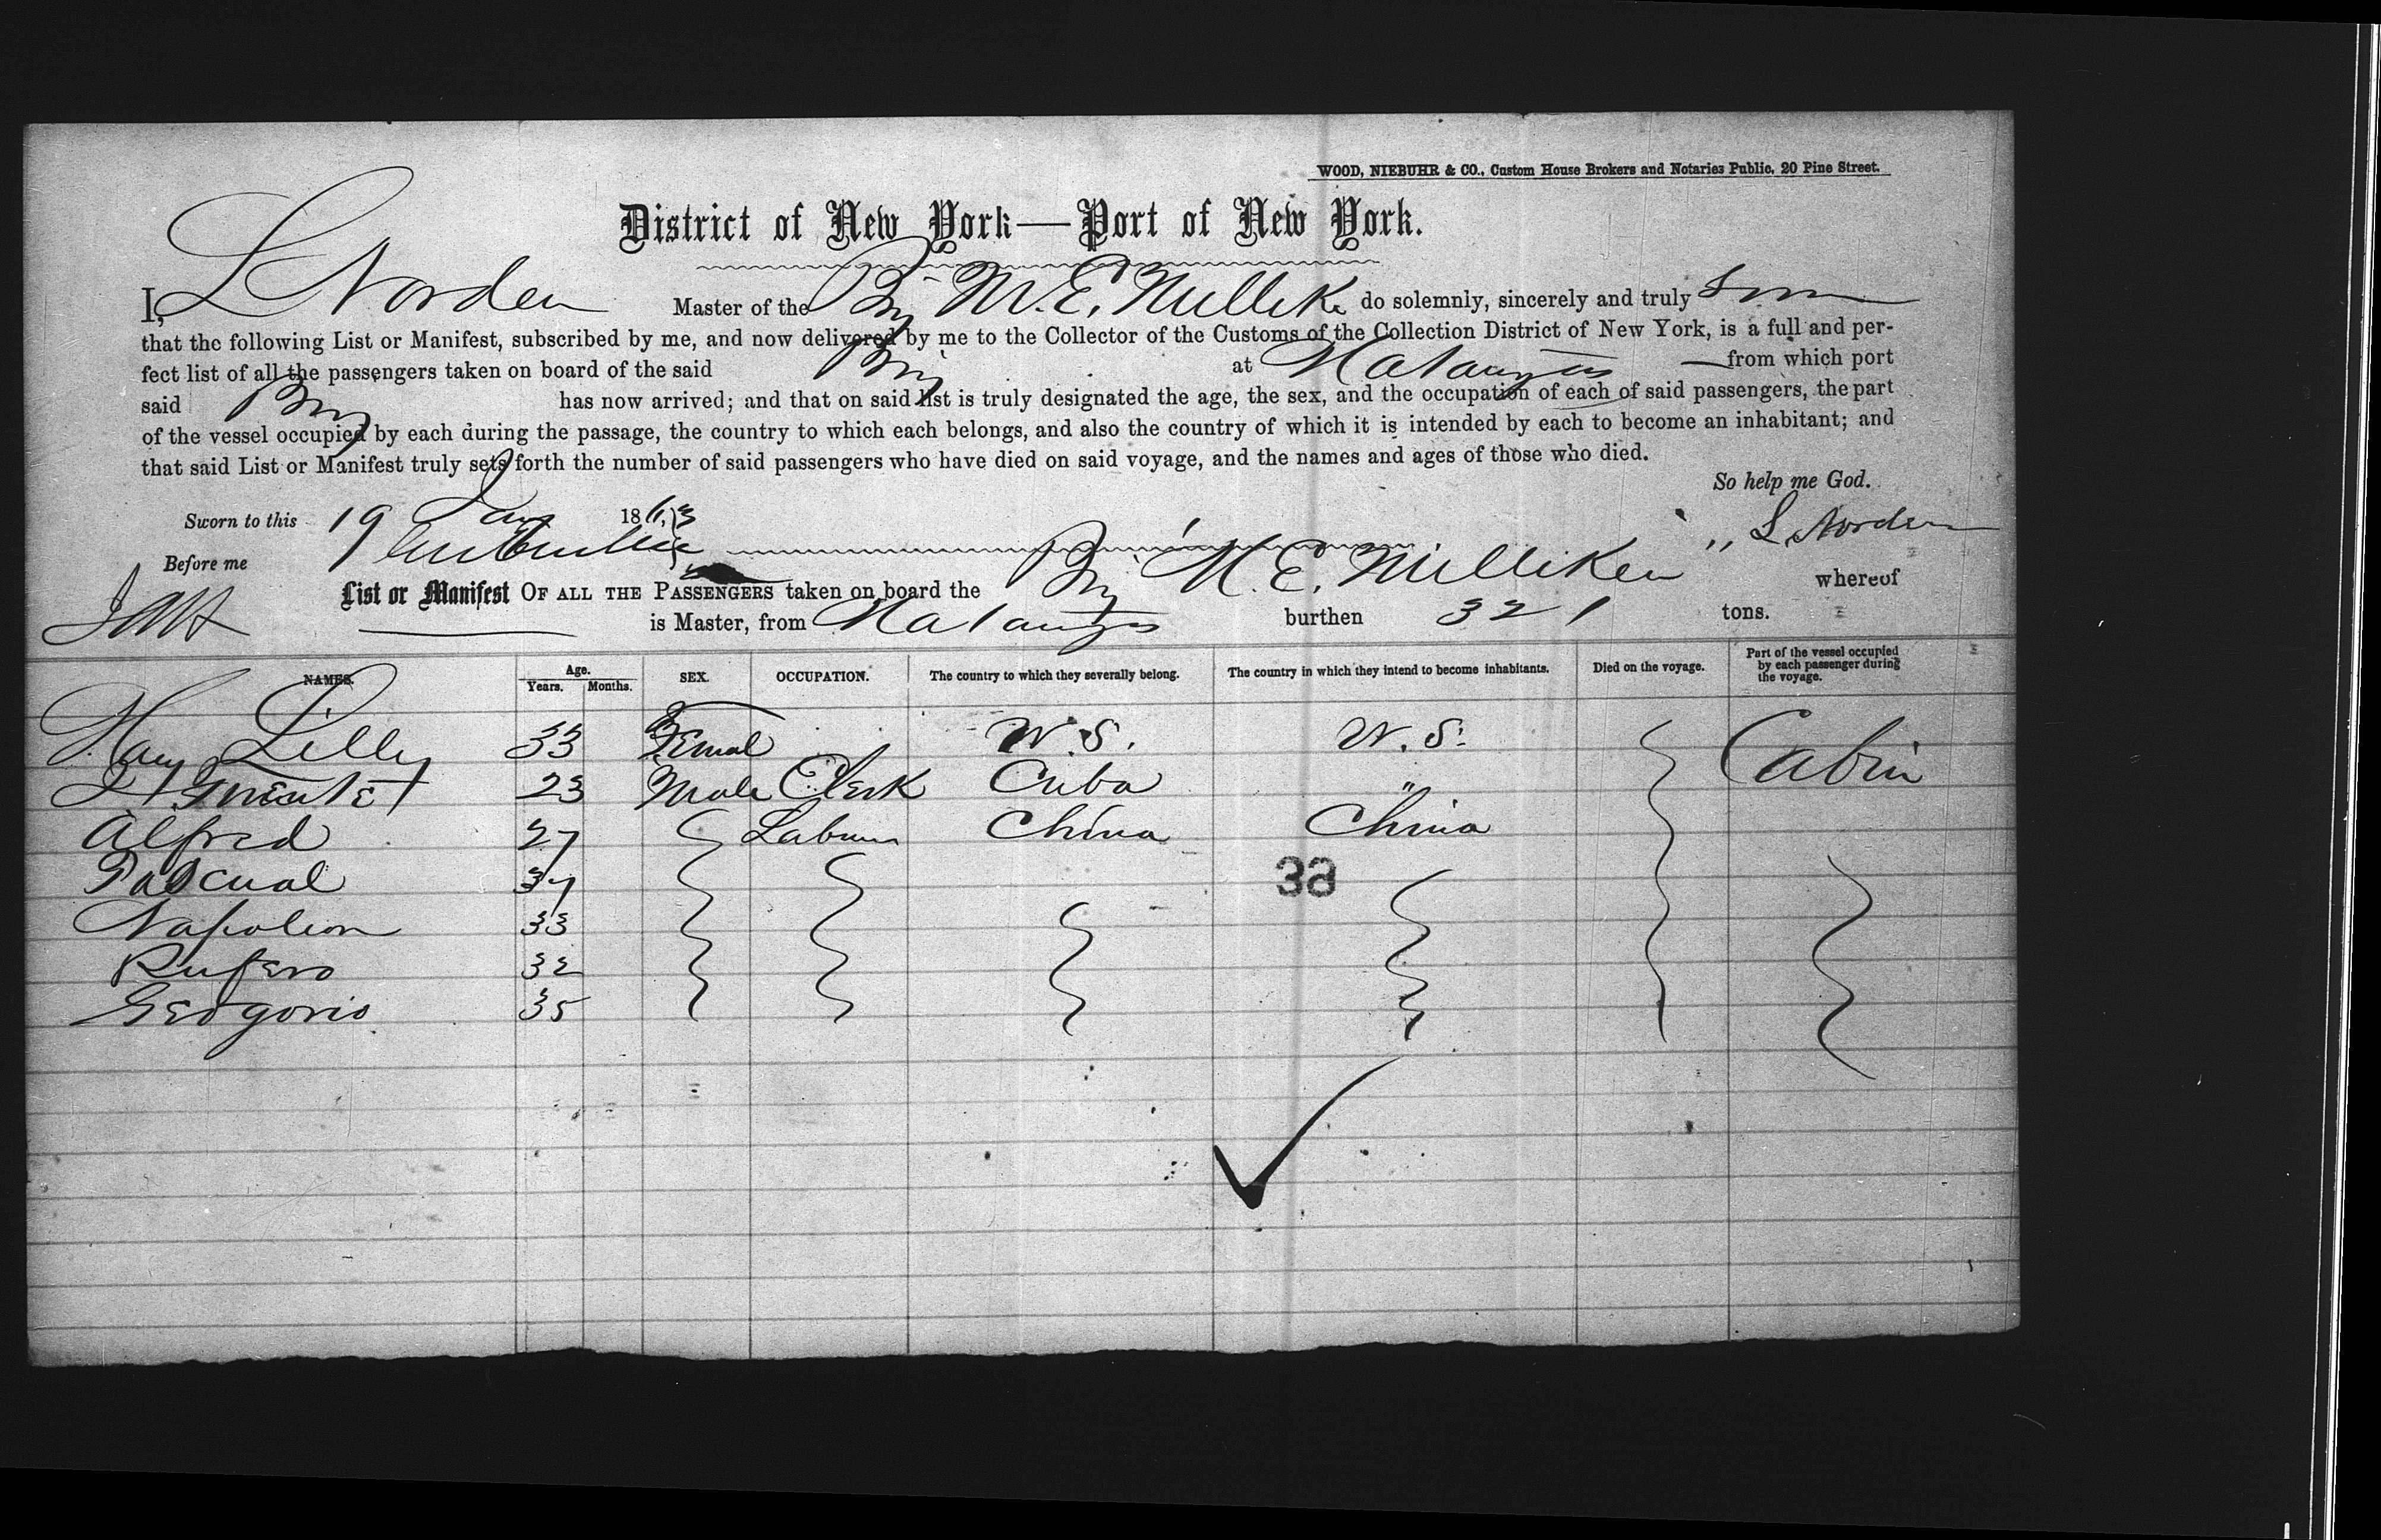 WOOD, NIEBUHR & CO., Custom House Brokers and Notaries Public, 20 Pine Street.
District of New York—Port of New York.
I, L Norden Master of the Brig M. E. Millike do solemnly, sincerely and truly
that the following List or Manifest, subscribed by me, and now delivered by me to the Collector of the Customs of the Collection District of New York, is a full and per-
fect list of all the passengers taken on board of the said Brig at Matanzas from which port
said Brig has now arrived; and that on said list is truly designated the age, the sex, and the occupation of each of said passengers, the part
of the vessel occupied by each during the passage, the country to which each belongs, and also the country of which it is intended by each to become an inhabitant; and
that said List or Manifest truly sets forth the number of said passengers who have died on said voyage, and the names and ages of those who died.
So help me God.
Sworn to this 19 Jany 1863
L Norden
Before me
List or Manifest OF ALL THE PASSENGERS taken on board the Brig M. E. Milliken whereof
is Master, from Matanzas burthen 321 tons.
NAMES. Age. Years. Months. SEX. OCCUPATION. The country to which they severally belong. The country in which they intend to become inhabitants. Died on the voyage. Part of the vessel occupied by each passenger during the voyage.
Mary Lilly 33 Femal U.S. U.S. Cabin
23 Male Clerk Cuba "
Alfred 27 Labour China China
Pascual 37
38
Napoleon 33
Rufero 32
Geogorio 35